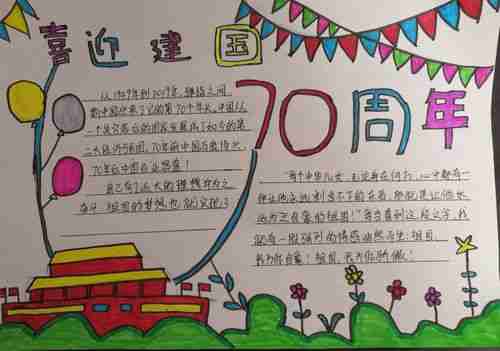 喜迎建国
70周年
从1949年到2019年,弹指之间,
新中国迎来了它的第70个年头。中国从
一个贫穷落后的国家发展成了如今的第
二大经济强国,70年前中国百废待兴,
70年后中国在业
自己有了远大的理想并为之
奋斗,祖国的梦想也就实现了
“每个中华儿女,无论身在何方,心中都有一
份让他永远割舍不下的在乎,那就是让他永
远为之自豪的祖国!”每当看到这段文字,我
就有一股强烈的情感油然而生:祖国,
我为你自豪!祖国,我为你骄傲!